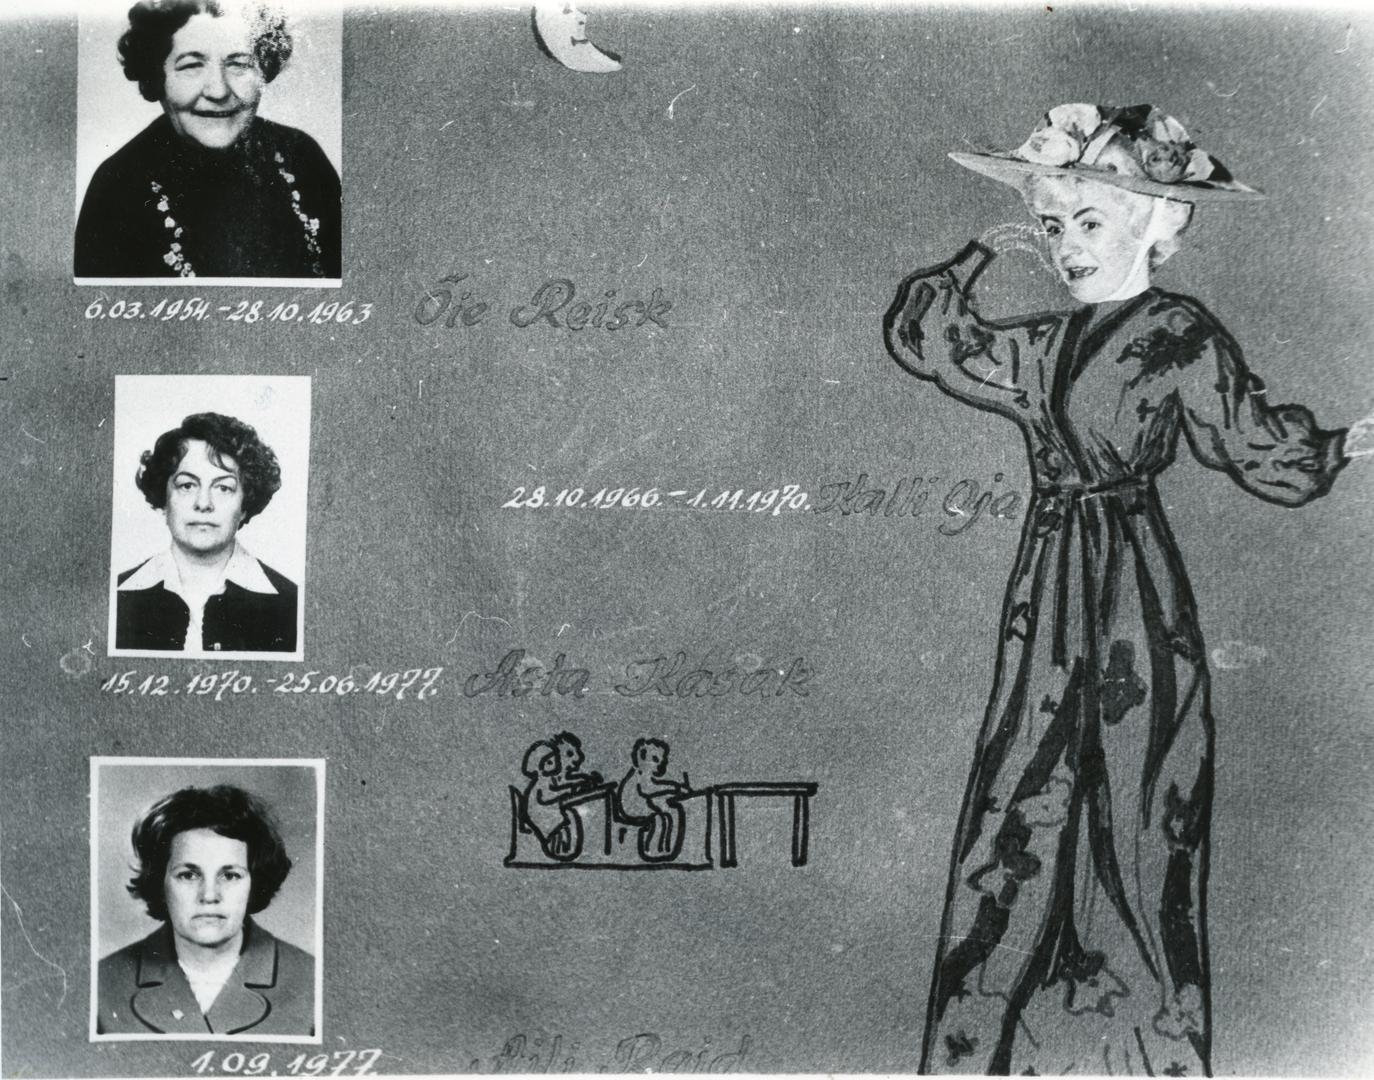 6.03.1954.-28.10.1963 Õie Reisk
28.10.1966.-1.11.1970. Kalli Oja
15.12.1970.-25.06.1977. Asta Kasak
1.09.1977. Aili Raid